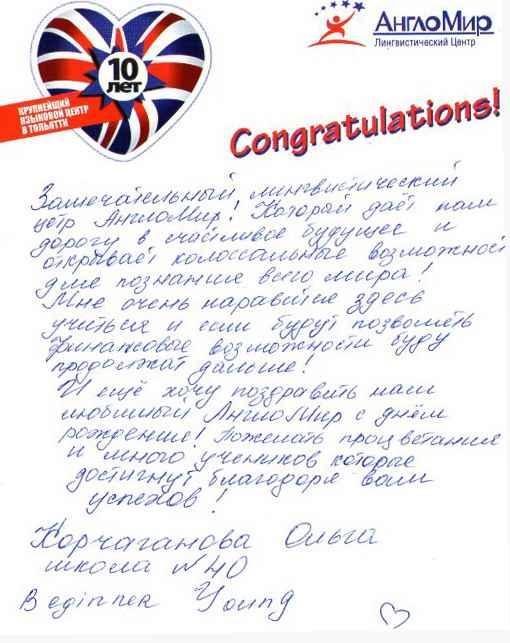 10
ЛЕТ
КРУПНЕЙШИЙ
ЯЗЫКОВОЙ ЦЕНТР
В ТОЛЬЯТТИ
АнглоМир
Лингвистический Центр
Congratulations!
Замечательный, лингвистический
цетр АнглоМир! Которай даёт нам
дорогу в счастливое будущее и
открывает колоссальные возможност
для познание всего мира!
Мне очень наравится здесь
учиться и если будут позволять
финансовые возможности буду
продолжат дальше!
И ещё хочу поздравить наш
любимый АнглоМир с днём
рождение! Пожелать процветания
и много учеников которые
достигнут благодоря вам
успехов!
Корчаганова Ольга
школа №40
Beginner Young